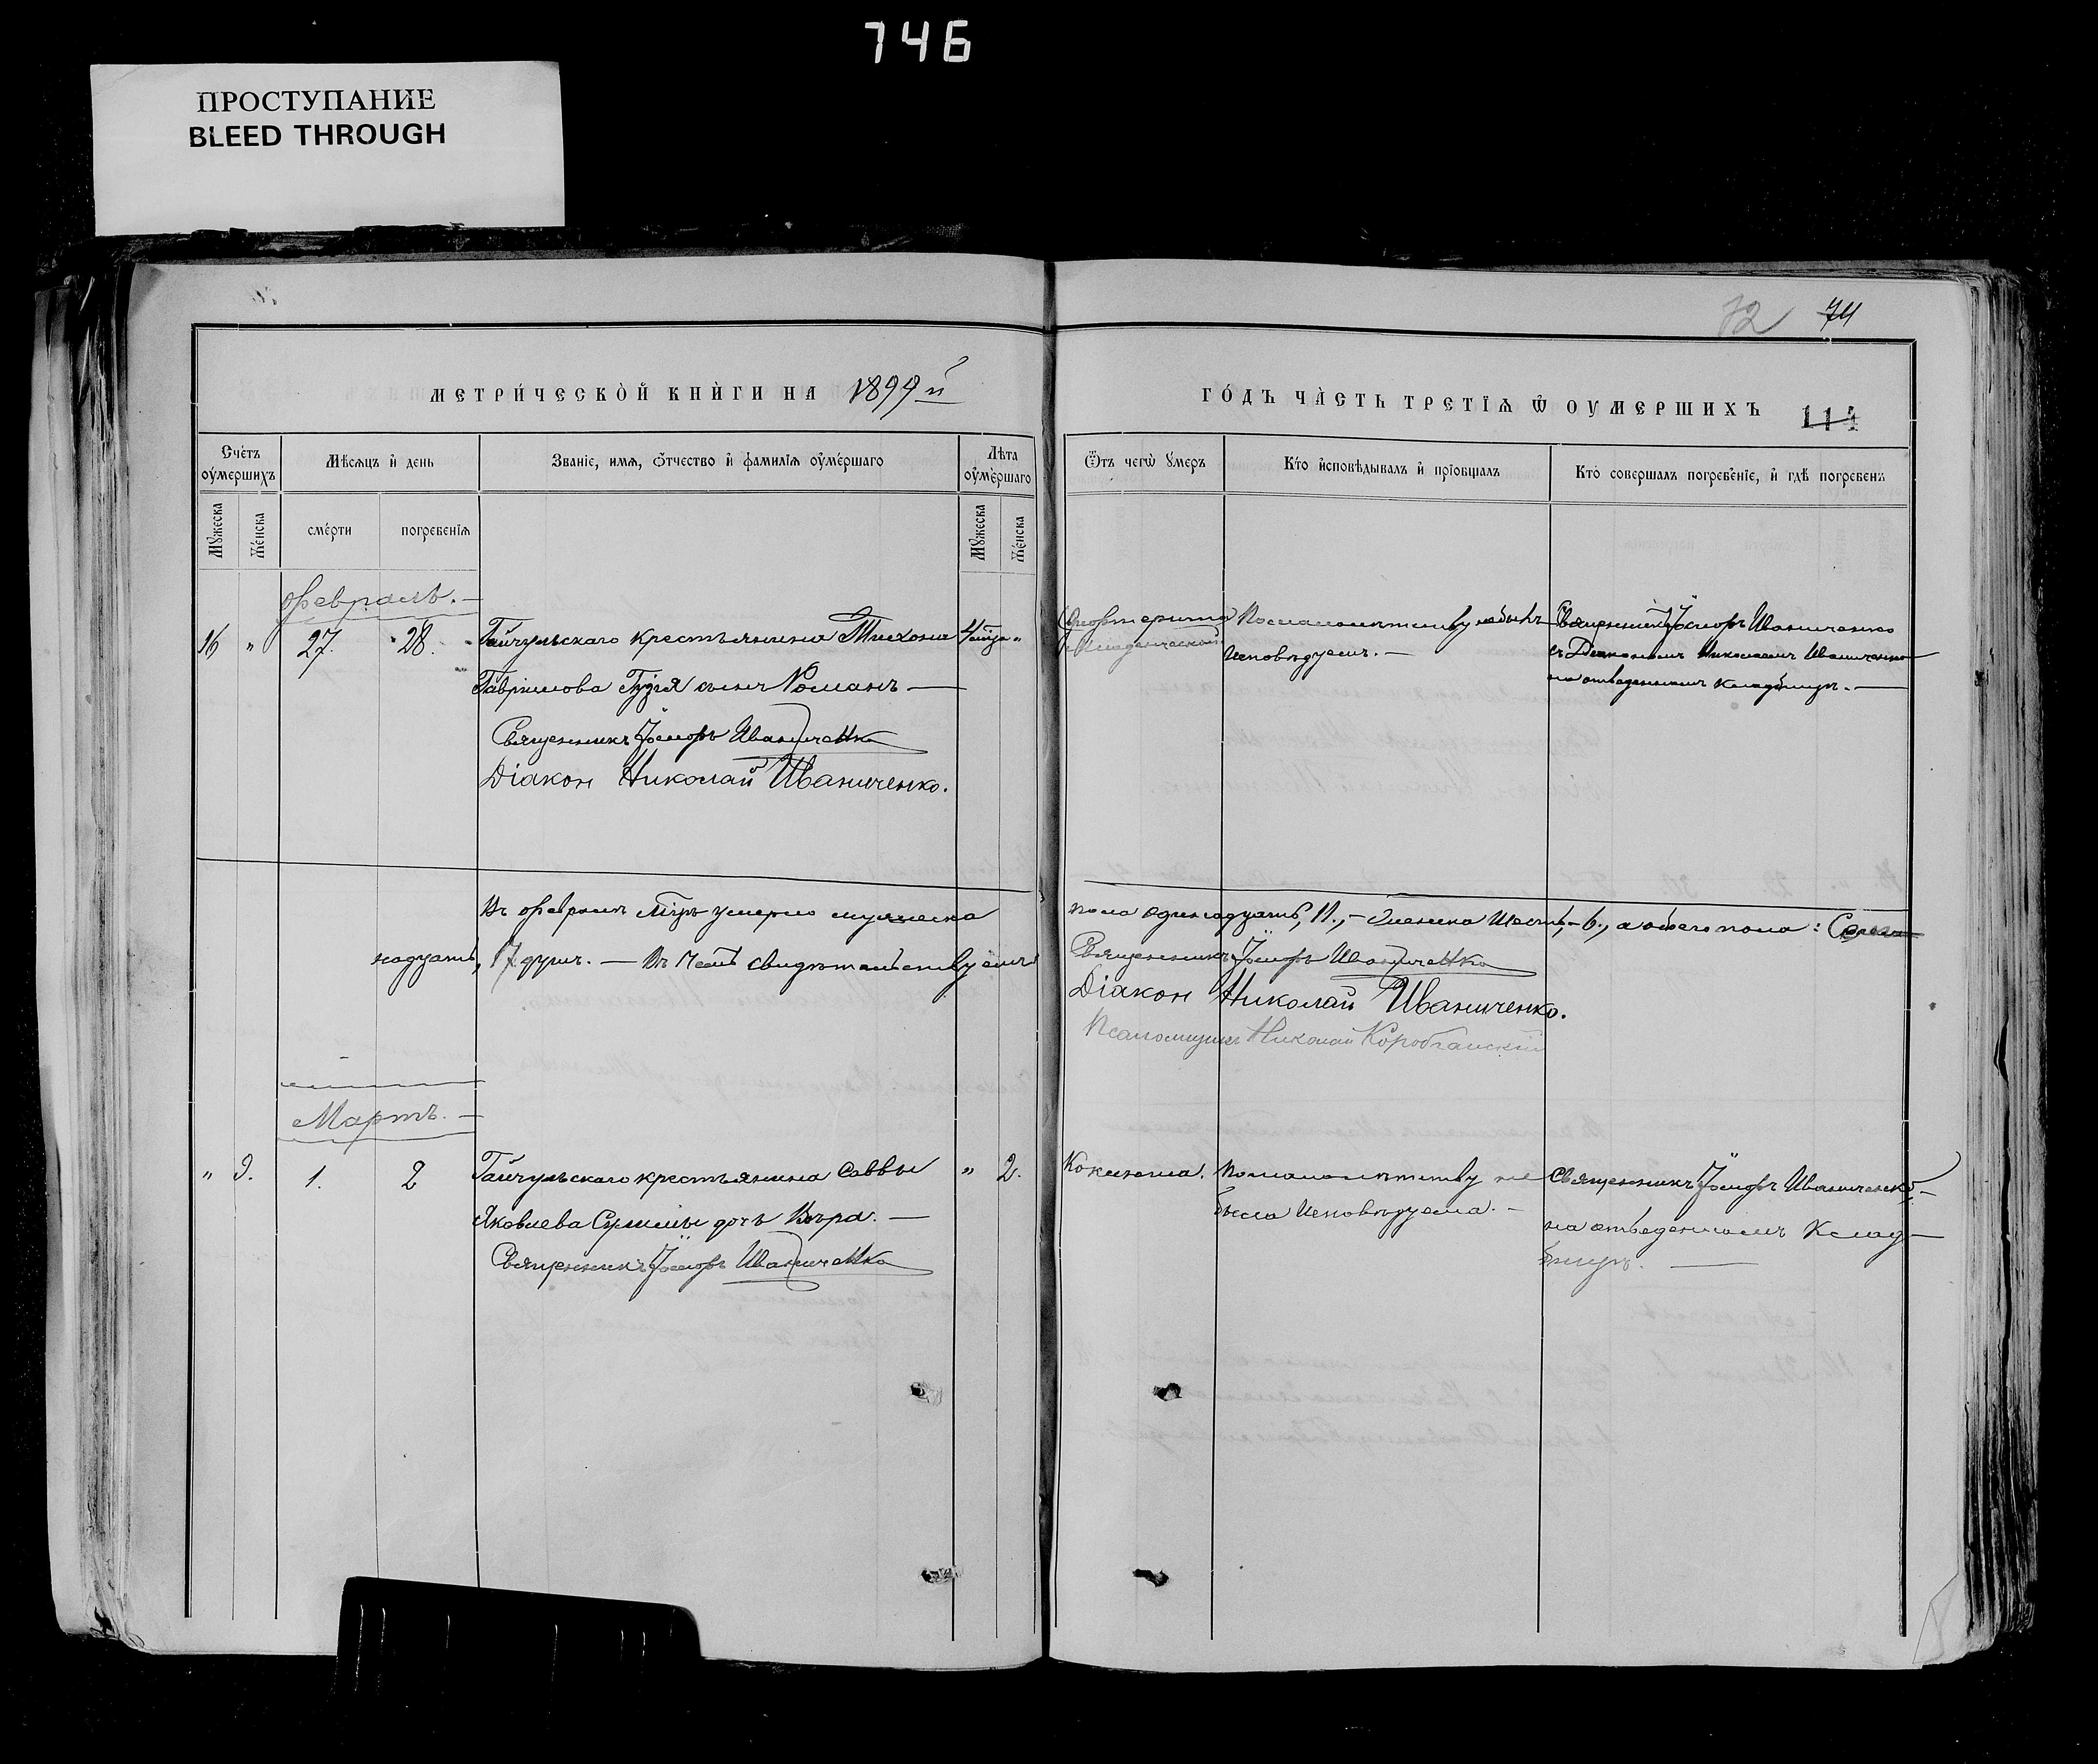 746
ПРОСТУПАНИЕ
BLEED THROUGH
72 74
МЕТРИ́ЧЕСКО̀Й КНЍГИ НА 1899 й
ГО́ДЪ ЧА̀СТЬ ТРЕТІѦ Ѿ ОУМЕРШИХЪ
114
Счётъ оу҆́мершихъ
Мѣсѧцъ и҆ день
Званіе, имѧ, ѻ҆́тчество и҆ фамилїѧ оу҆мершаго
Лѣта оу҆ме́ршаго
Ѿтъ чегѡ̀ ᲂумеръ
Кто̀ и҆сповѣ́дывалъ и҆ прїобщалъ
Кто̀ совершалъ погребе́ніе, и҆ гдѣ̀ погребенъ
Мꙋжеска
Же́нска
сме́рти
погребе́нїѧ
Мꙋжеска
Же́нска
Февраль.—
16 " 27. 28. Гайчульскаго крестьянина Тихона 4 "
Гаврилова сынъ Романъ —
Священникъ Іосифъ Иваниченко
Діакон Николай Иваниченко.
По малолѣтству не былъ
исповѣдуемъ. —
Священникъ Іосифъ Иваниченко
съ Діакономъ Николаемъ Иваниченко
на отведенномъ кладбищѣ. —
Въ февралѣ мѣсяцѣ умерло мужеска пола одинадцать, 11., — женска шесть, — 6., а обоего пола: Сем
надцать, 17 душъ. — Въ чемъ свидѣтельствуемъ
Священникъ Іосифъ Иваниченко
Діакон Николай Иваниченко.
Псаломщикъ Николай
Мартъ. —
" 1. 2 Гайчульскаго крестьянина Саввы " 2.
Яковлева дочь Вѣра. —
Священникъ Іосифъ Иваниченко
Коклюша.
По малолѣтству не
была исповѣдуема. —
Священникъ Іосифъ Иваниченко, —
на отведенномъ клад-
бищѣ. —